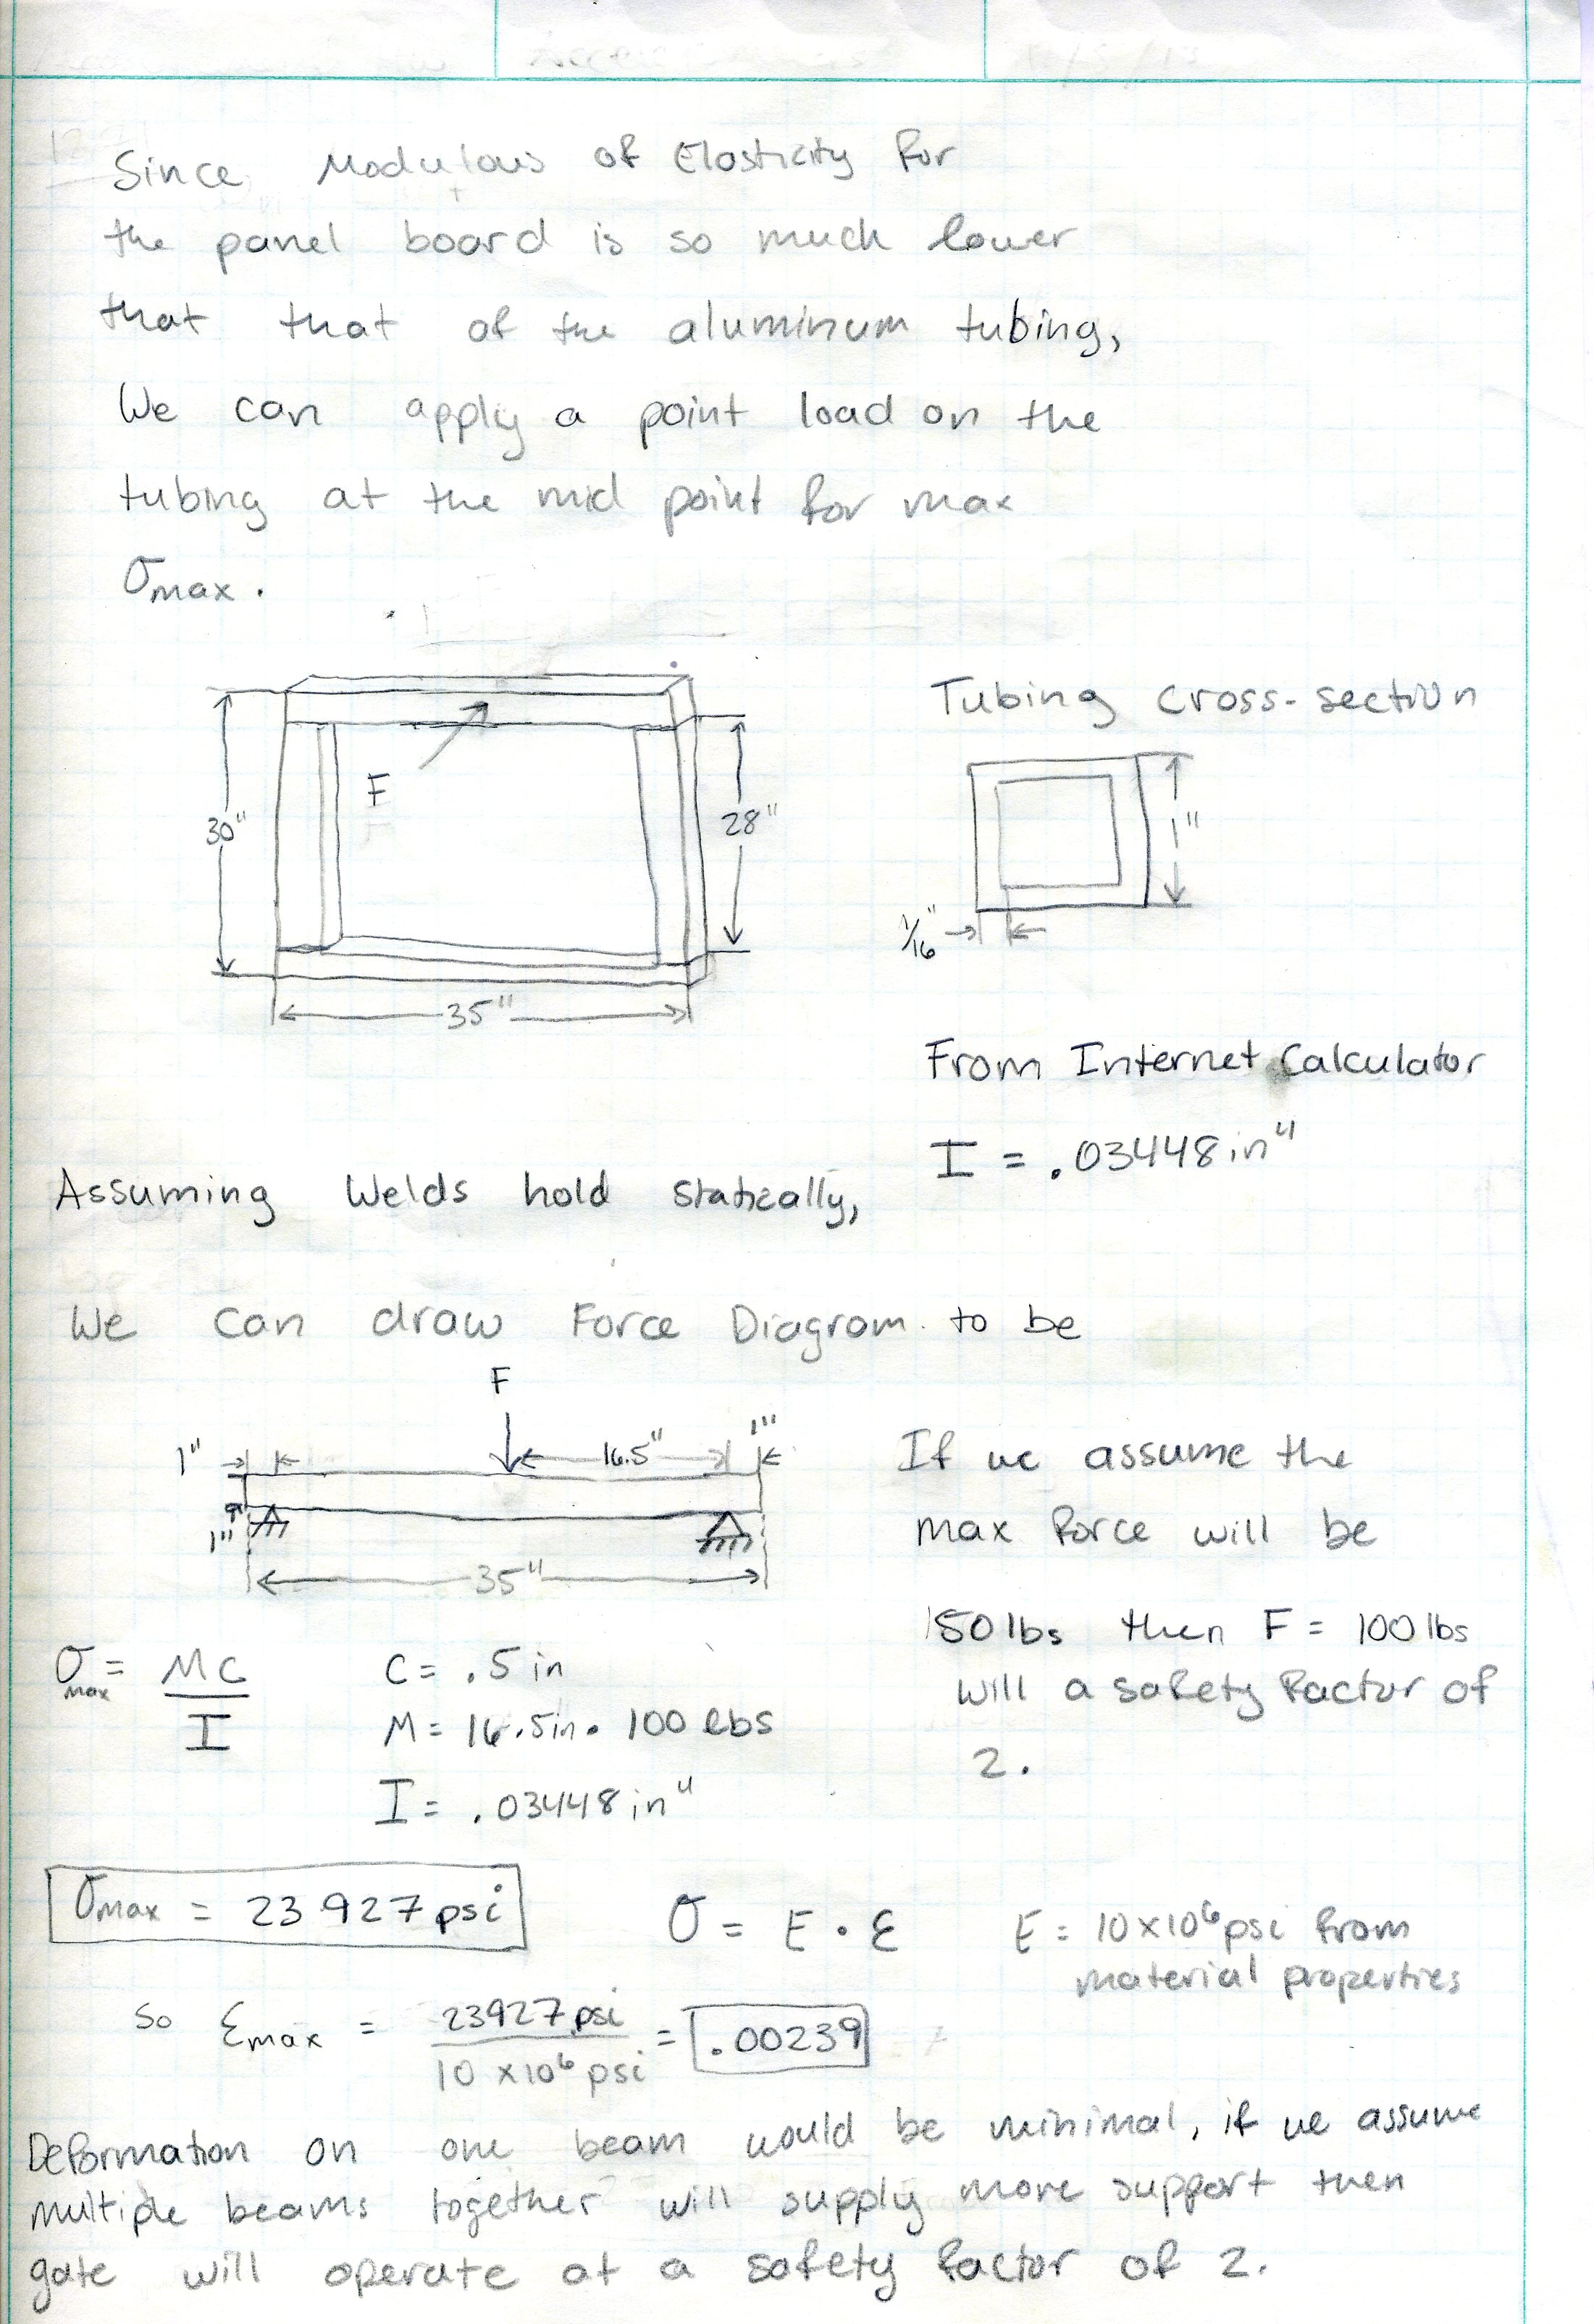 Since Modulous of Elasticity for
the panel board is so much lower
that that of the aluminum tubing,
We can apply a point load on the
tubing at the mid point for max
σmax.
Tubing cross-section
F
30"
28"
1"
1/16"
35"
From Internet Calculator
I = .03448in⁴
Assuming Welds hold statically,
We can draw Force Diagram to be
F
1"
16.5"
1"
1"
35"
If we assume the
max force will be
150 lbs then F = 100 lbs
will a safety factor of
2.
σmax = MC/I
C = .5 in
M = 16.5in · 100 lbs
I = .03448in⁴
σmax = 23927psi
σ = E · ε
E = 10x10⁶psi from
material properties
So εmax = 23927psi / 10 x10⁶ psi = .00239
Deformation on one beam would be minimal, if we assume
multiple beams together will supply more support then
gate will operate at a safety factor of 2.